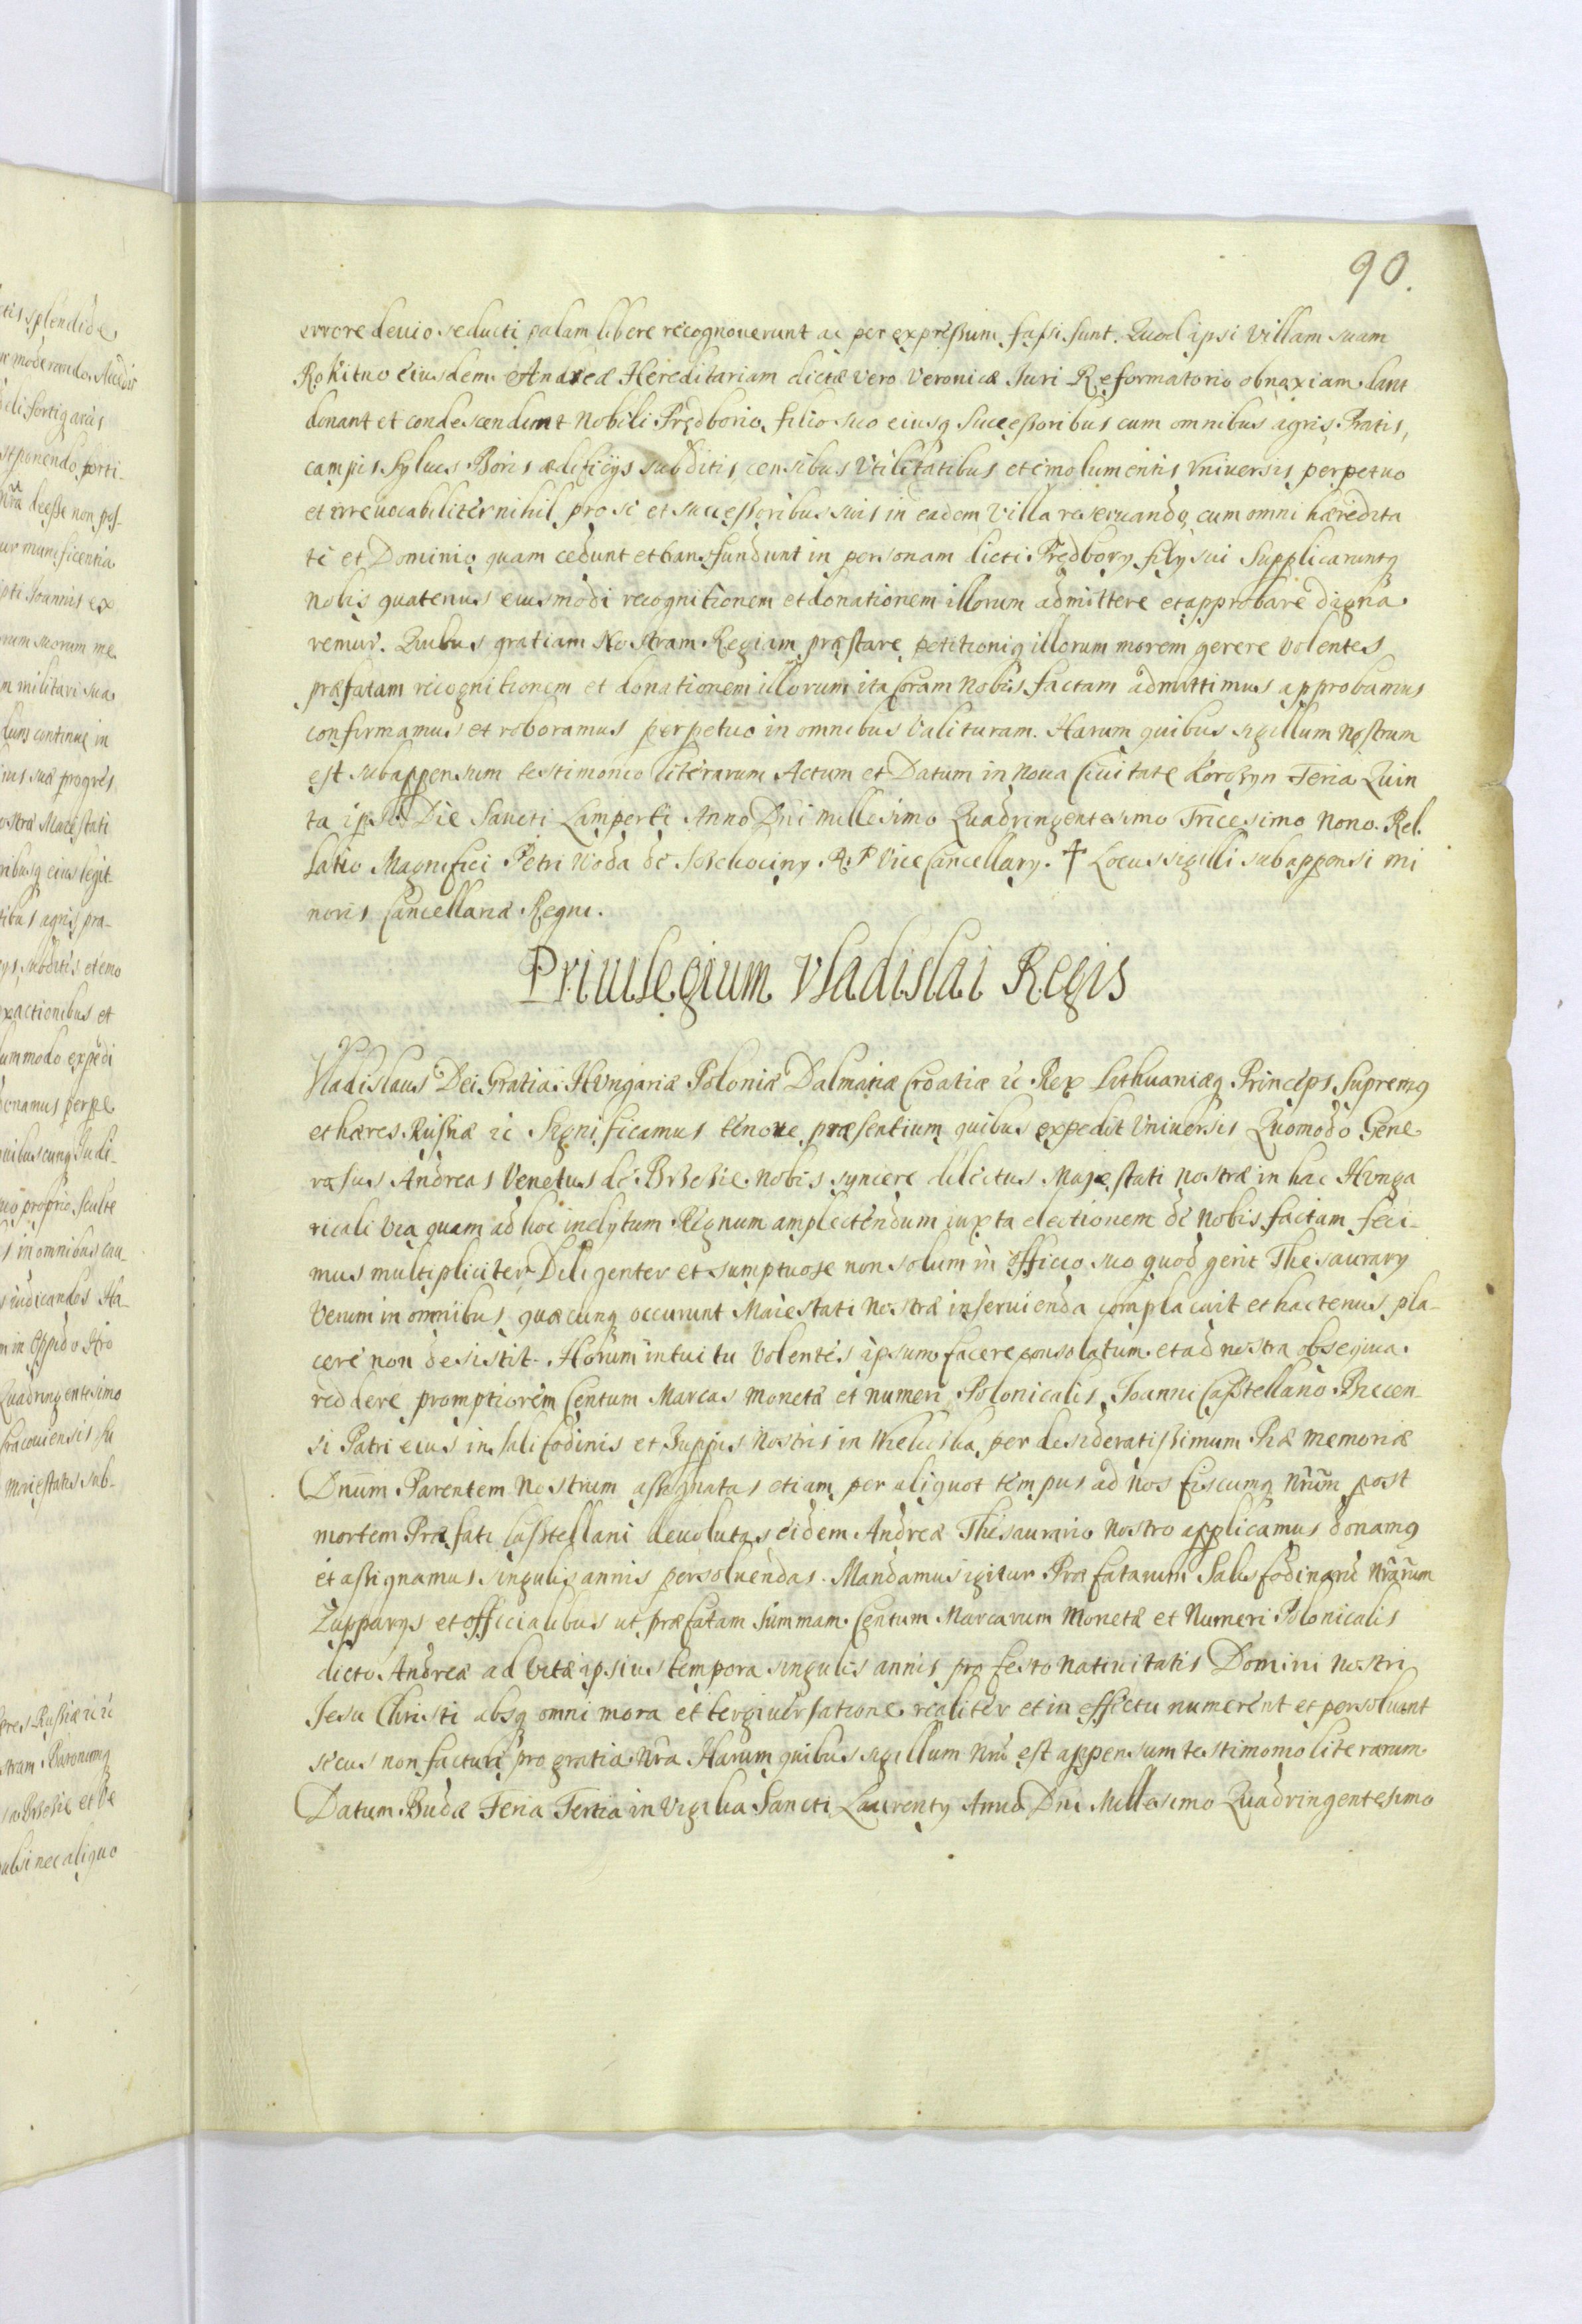 90.
errore deuio seducti palam libere recognouerunt ac per expressum fassi sunt. Quod ipsi villam suam
Rokitno eiusdem Andreæ Hereditariam dictæ vero Veronicæ Iuri Reformatorio obnoxiam dant
donant et condescendunt Nobili Prędborio filio suo eiusq Successoribus cum omnibus agris Pratis,
campis Syluis Boris ædificÿs subditis censibus Vtilitatibus et emolumentis Vniversis perpetuo
et irreuocabiliter nihil pro se et successoribus suis in eadem Villa reseruando cum omni hæredita
te et Dominio quam cedunt et transfundunt in personam dicti Prędborÿ filÿ sui Supplicaruntq
Nobis quatenus eiusmodi recognitionem et donationem illorum admittere et approbare digna
remur. Quibus gratiam Nostram Regiam præstare petitioniq illorum morem gerere Volentes
præfatam recognitionem et donationem illorum ita Coram Nobis factam admittimus approbamus
confirmamus et roboramus perpetuo in omnibus Valituram. Harum quibus sigillum Nostrum
est subappensum testimonio literarum Actum et Datum in Noua Ciuitate Korczyn Feria Quin
ta ipso Die Sancti Lamperti Anno Dni millesimo Quadringentesimo Tricesimo Nono. Rel.
latio Magnifici Petri Woda de Szchociny R. P Vice Cancellarÿ. † Locus sigilli subappensi mi
noris Cancellariæ Regni.
Priuilegium Vladislai Regis
Vladislaus Dei Gratia Hungariæ Poloniæ Dalmatiæ Croatiæ ꝛc Rex Lithuaniæq Princeps Supremq
et hæres Russiæ ꝛc Significamus tenore præsentium quibus expedit Vniuersis Quomodo Gene
rosus Andreas Venetus de Brzezie Nobis syncere dilectus Majestati Nostræ in hac Hunga
ricali Via quam ad hoc inclytum Regnum amplectendum iuxta electionem de Nobis factam feci-
mus multipliciter Diligenter et sumptuose non solum in officio suo quod gerit Thesaurarÿ
Verum in omnibus quæcunq occurunt Maiestati Nostræ inseruienda complacuit et hactenus pla-
cere non desistit. Horum intuitu Volentes ipsum facere consolatum et ad nostra obsequia
reddere promptiorem Centum Marcas Monetæ et numeri Polonicalis Joanni Castellano Biecen-
si Patri eius in Salifodinis et Zuppis Nostris in Wieliczka per desideratissimum Piæ Memoriæ
Dnum Parentem Nostrum assignatas etiam per aliquot tempus ad nos fiscumq Nrum post
mortem Præfati Castellani deuolutas eidem Andreæ Thesaurario Nostro applicamus donamq
et assignamus singulis annis persoluendas. Mandamus igitur Præfatarum Salisfodinarū Nrarum
Zupparÿs et officialibus ut præfatam Summam Centum Marcarum Monetæ et Numeri Polonicalis
dicto Andreæ ad Vitæ ipsius tempora singulis annis pro festo Natiuitatis Domini Nostri
Jesu Christi absq omni mora et tergiuersatione realiter et in effectu numerent et persoluant
secus non facturi pro gratia Nra Harum quibus sigillum Nrū est appensum testimonio literarum
Datum Budæ Feria Tertia in Vigilia Sancti Laurentÿ Anno Dni Millesimo Quadringentesimo